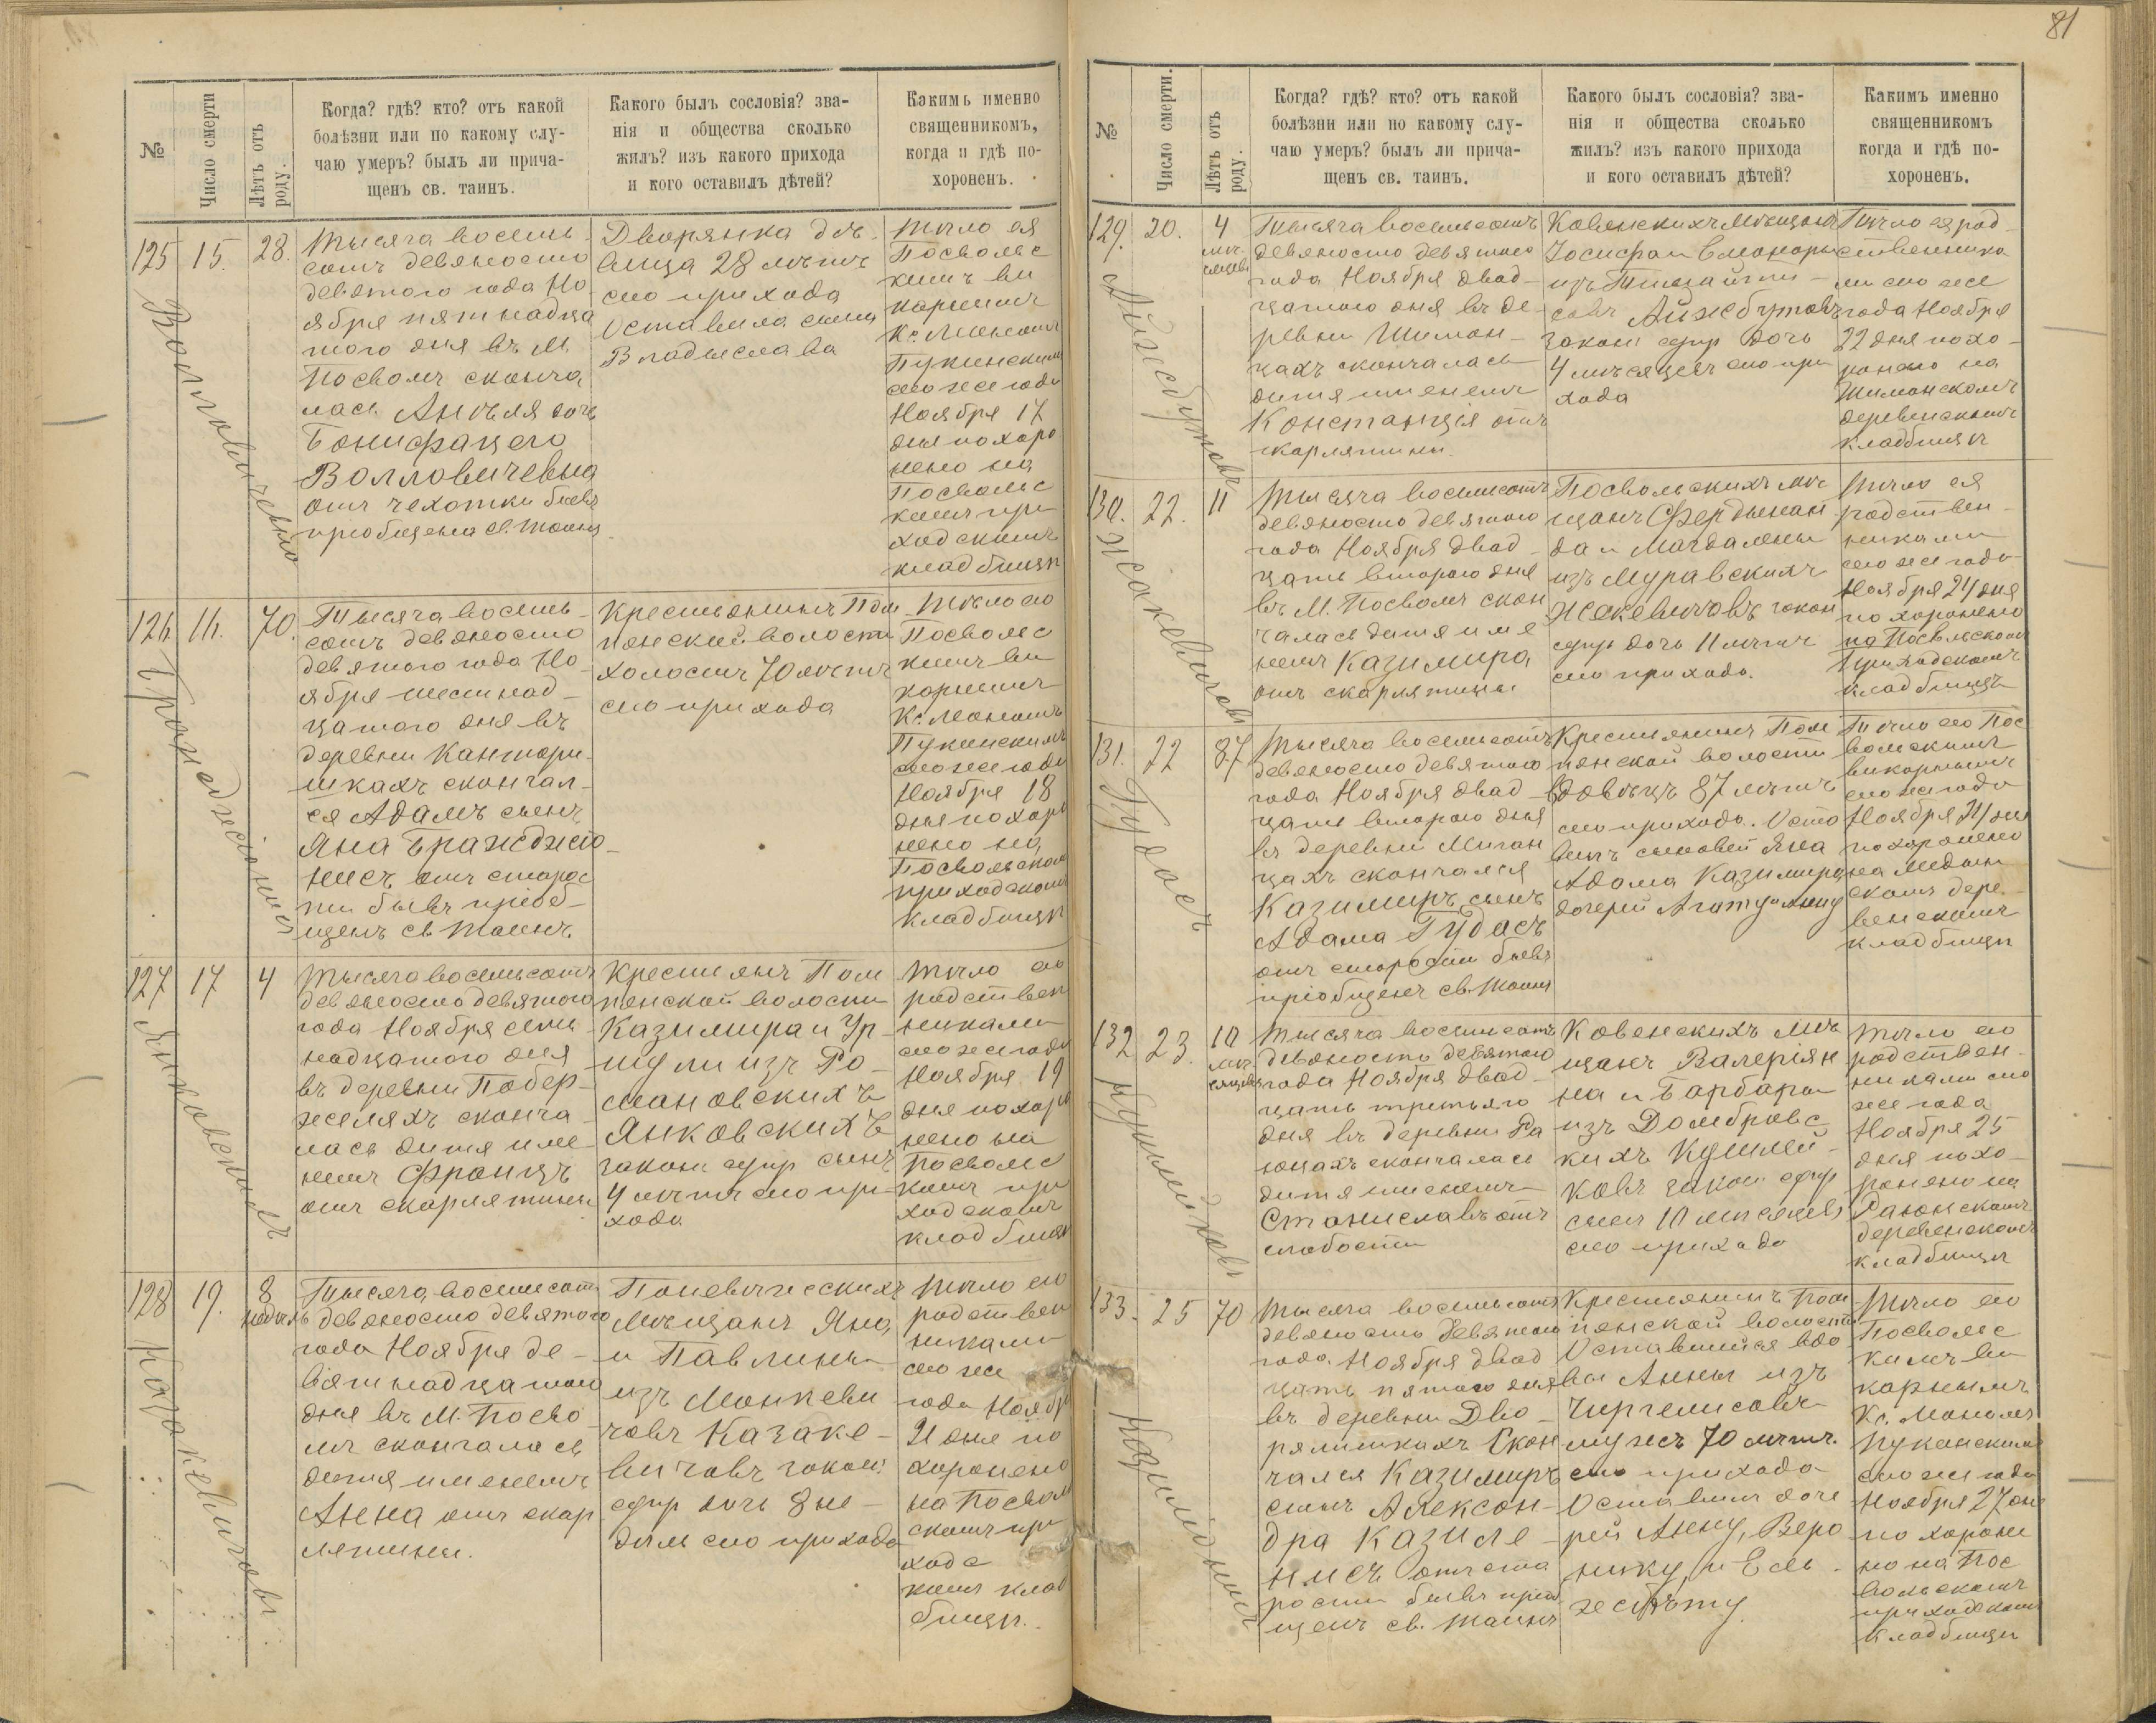 81
№
Число смерти
Лѣтъ отъ
роду.
Когда? гдѣ? кто? отъ какой
болѣзни или по какому слу-
чаю умеръ? былъ ли прича-
щенъ св. таинъ.
Какого былъ сословія? зва-
нія и общества сколько
жилъ? изъ какого прихода
и кого оставилъ дѣтей?
Какимъ именно
священникомъ,
когда и гдѣ по-
хороненъ.
125
15.
28.
Тысяча восемь
сотъ девяносто
девятого года Но
ября пятнадца
того дня въ М.
Посволѣ сконча
лась Анеля дочь
Бонифацего
Волловичевна
отъ чехотки бывъ
пріобщена св. Таинъ
Дворянка дѣ-
вица 28 лѣтъ
сего прихода
Оставила сына
Владыслава
Тѣло ея
Посвольс
кимъ ви
карнымъ
Кс. Монотъ
Пукинскимъ
сего же года
Ноября 17
дня похоро
нено на
Посвольс
комъ при
ходскомъ
кладбищѣ
126
16.
70.
Тысяча восемь
сотъ девяносто
девятого года Но
ября шестнад-
цатого дня въ
деревни Кантори-
шкахъ скончал-
ся Адамъ сынъ
Яна Браждзіо-
нисъ отъ старос
ти бывъ пріоб-
щенъ св. Таинъ
Крестьянинъ Пом
пянской волости
холостъ 70 лѣтъ
сего прихода
Тѣло его
Посвольс
кимъ ви
карнымъ
Кс. Монотъ
Пукинскимъ
сего же года
Ноября 18
дня похоро
нено на
Посвольскомъ
приходскомъ
кладбищѣ
127
17
4
Тысяча восемьсотъ
девяносто девятого
года Ноября семь
надцатого дня
въ деревни Побер-
желяхъ сконча-
лась дитя име
немъ Францъ
отъ скарлятины
Крестьянъ Пом
пянской волости
Казимира и Ур-
шули изъ Ро-
мановскихъ
Янковскихъ
закон. супр. сынъ
4 лѣтъ сего при-
хода
Тѣло его
родствен
никами
сего же года
Ноября 19
дня похоро
нено на
Посвольс
комъ при
ходскомъ
кладбищѣ
Янковскихъ
128
19.
8
недѣль
Тысяча восемьсотъ
девяносто девятого
года Ноября де-
вятнадцатого
дня въ М. Посво
лѣ скончалась
дитя именемъ
Анна отъ скар
лятины.
Поневѣжскихъ
Мѣщанъ Яна
и Павлины
изъ Монкеви
човъ Казаке-
вичовъ закон.
супр. дочь 8 не-
дѣль сего прихода
Тѣло его
родствен
никами
сего же
года Ноября
21 дня по
хоронено
на Посволь
скомъ при
ходс
комъ клад
бищѣ.
Казакевичовъ
№
Число смерти.
Лѣтъ отъ
роду.
Когда? гдѣ? кто? отъ какой
болѣзни или по какому слу-
чаю умеръ? былъ ли прича-
щенъ св. таинъ.
Какого былъ сословія? зва-
нія и общества сколько
жилъ? изъ какого прихода
и кого оставилъ дѣтей?
Какимъ именно
священникомъ
когда и гдѣ по-
хороненъ.
129.
20.
4
мѣ-
сяцевъ
Тысяча восемьсотъ
девяносто девятого
года Ноября двад-
цатого дня въ де-
ревни Шиман-
цахъ скончалась
дитя именемъ
Констанція отъ
скарлятины.
Ковенскихъ Мѣщанъ
совъ Айжебутовъ
закон. супр. дочь
4 мѣсяцевъ сего при
хода
Тѣло ея род-
ственника-
ми сего же
года Ноября
22 дня похо-
ронено на
Шиманскомъ
деревенскомъ
кладбищѣ
130.
22.
11
Тысяча восемьсотъ
девяносто девятого
года Ноября двад-
цать второго дня
въ М. Посволѣ скон
чалась дитя име
немъ Казимира
отъ скарлятины
Посвольскихъ мѣ
щанъ Фердынан
да и Магдалены
изъ Муравскихъ
Жакевичовъ закон
супр. дочь 11 лѣтъ
сего прихода.
Тѣло ея
родствен-
никами
сего же года
Ноября 24 дня
похоронено
на Посвольскомъ
приходскомъ
кладбищѣ
Жакевичовъ
131.
22
87
Тысяча восемьсотъ
девяносто девятого
года Ноября двад-
цать второго дня
въ деревни Миган
цахъ скончался
Казимиръ сынъ
Адама Гудасъ
отъ старости бывъ
пріобщенъ св. Таинъ
Крестьянинъ Пом
пянской волости
вдовецъ 87 лѣтъ
сего прихода. Оста
вилъ сыновей Яна
Адама Казимира
дочерей Агату и Анну
Тѣло его Пос
вольскимъ
викарнымъ
сего же года
Ноября 24 дня
похоронено
скомъ дере-
венскомъ
кладбищѣ
Гудасъ
132
23.
10
мѣ-
сяцевъ
Тысяча восемьсотъ
девяносто девятого
года Ноября двад-
цать третьяго
дня въ деревни Ра
юнахъ скончалась
дитя именемъ
Станиславъ отъ
слабости
Ковенскихъ Мѣ
щанъ Валеріян
на и Барбары
изъ Домбровс
кихъ Кушлей-
ковъ закон. супр.
сынъ 10 мѣсяцевъ
сего прихода
Тѣло его
родствен-
никами сего
же года
Ноября 25
дня похо-
ронено на
Раюнскомъ
деревенскомъ
кладбищѣ
133.
25
70
Тысяча восемьсотъ
девяносто девятого
года Ноября двад
цать пятого дня
въ деревни Дво-
рялишкахъ скон
чался Казимиръ
сынъ Алексан-
дра Казиле-
нисъ отъ ста
рости бывъ пріоб
щенъ св. Таинъ
Крестьянинъ Пом
пянской волости
Оставшийся вдо
вы Анны изъ
мужъ 70 лѣтъ.
сего прихода
Оставилъ доче
рей Анну, Веро
нику, и Ель-
жебѣту
Тѣло его
Посвольс
кимъ ви
карнымъ
Кс. Монотъ
Пукинскимъ
сего же года
Ноября 27 дня
похороне
но на Пос
вольскомъ
приходскомъ
кладбищѣ